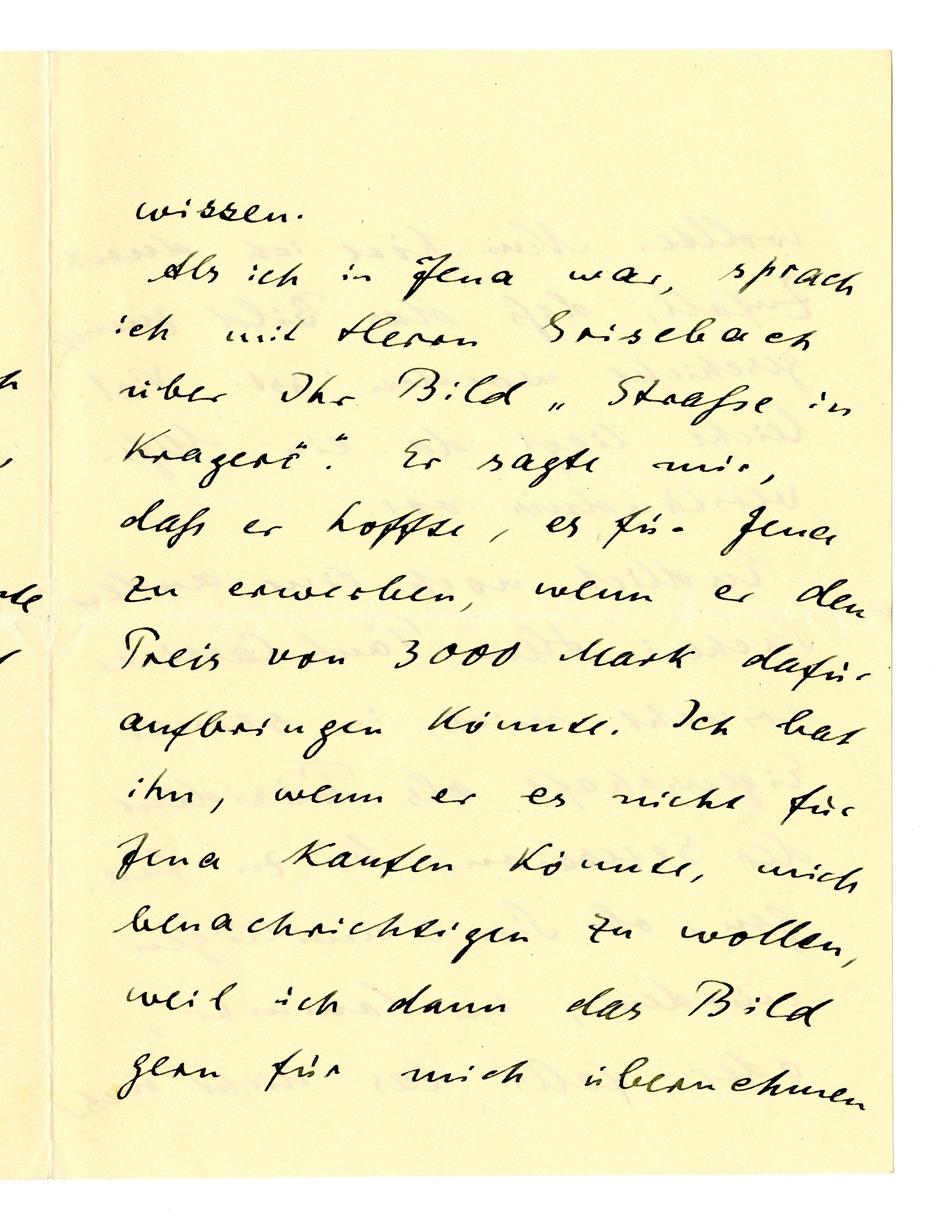 wissen.
Als ich in Jena war, sprach
ich mit Herrn Grisebach
über Ihr Bild „Straße in
Kragerö". Er sagte mir,
daß er hoffte, es für Jena
zu erwerben, wenn er den
Preis von 3000 Mark dafür
aufbringen könnte. Ich bat
ihn, wenn er es nicht für
Jena kaufen könnte, mich
benachrichtigen zu wollen,
weil ich dann das Bild
gern für mich übernehmen